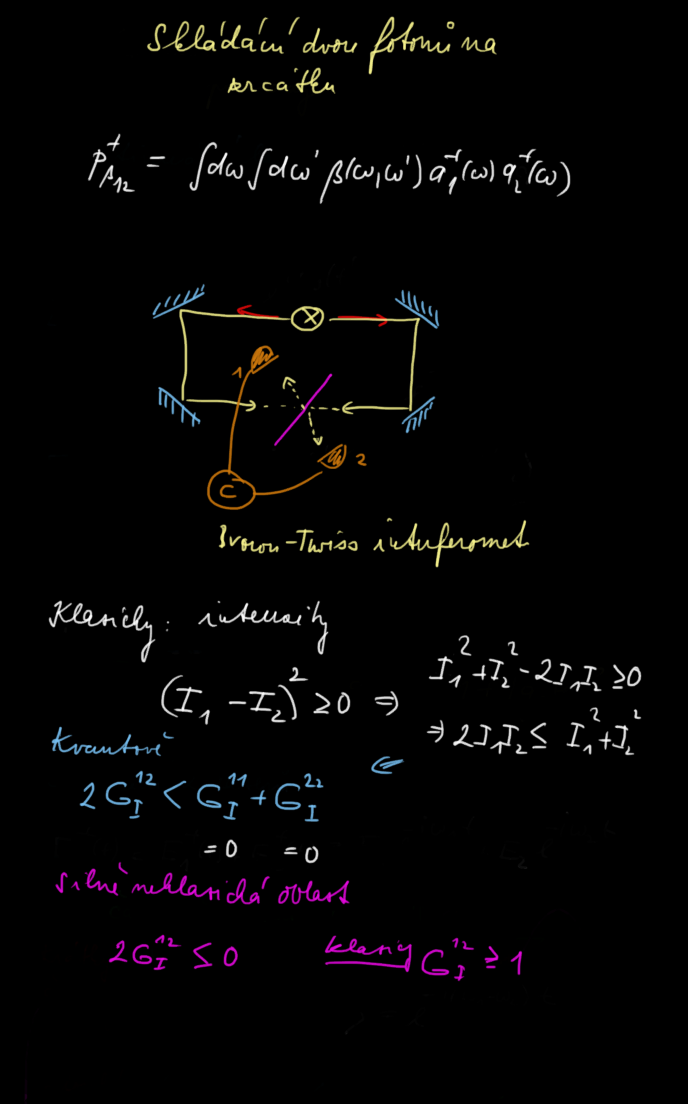 Skládání dvou fotonů na
zrcátku
P^+_{β_{12}} = ∫dω∫dω' β(ω,ω') a_1^+(ω) a_2^+(ω)
X
1
2
C
Brown-Twiss interferomet
Klasicky: intensity
(I_1 - I_2)^2 ≥ 0 ⇒ I_1^2 + I_2^2 - 2I_1I_2 ≥ 0
⇒ 2I_1I_2 ≤ I_1^2 + I_2^2
Kvantově
2G_I^{12} < G_I^{11} + G_I^{22}
= 0 = 0
silně neklasická oblast
2G_I^{12} ≤ 0 klasicky G_I^{12} ≥ 1